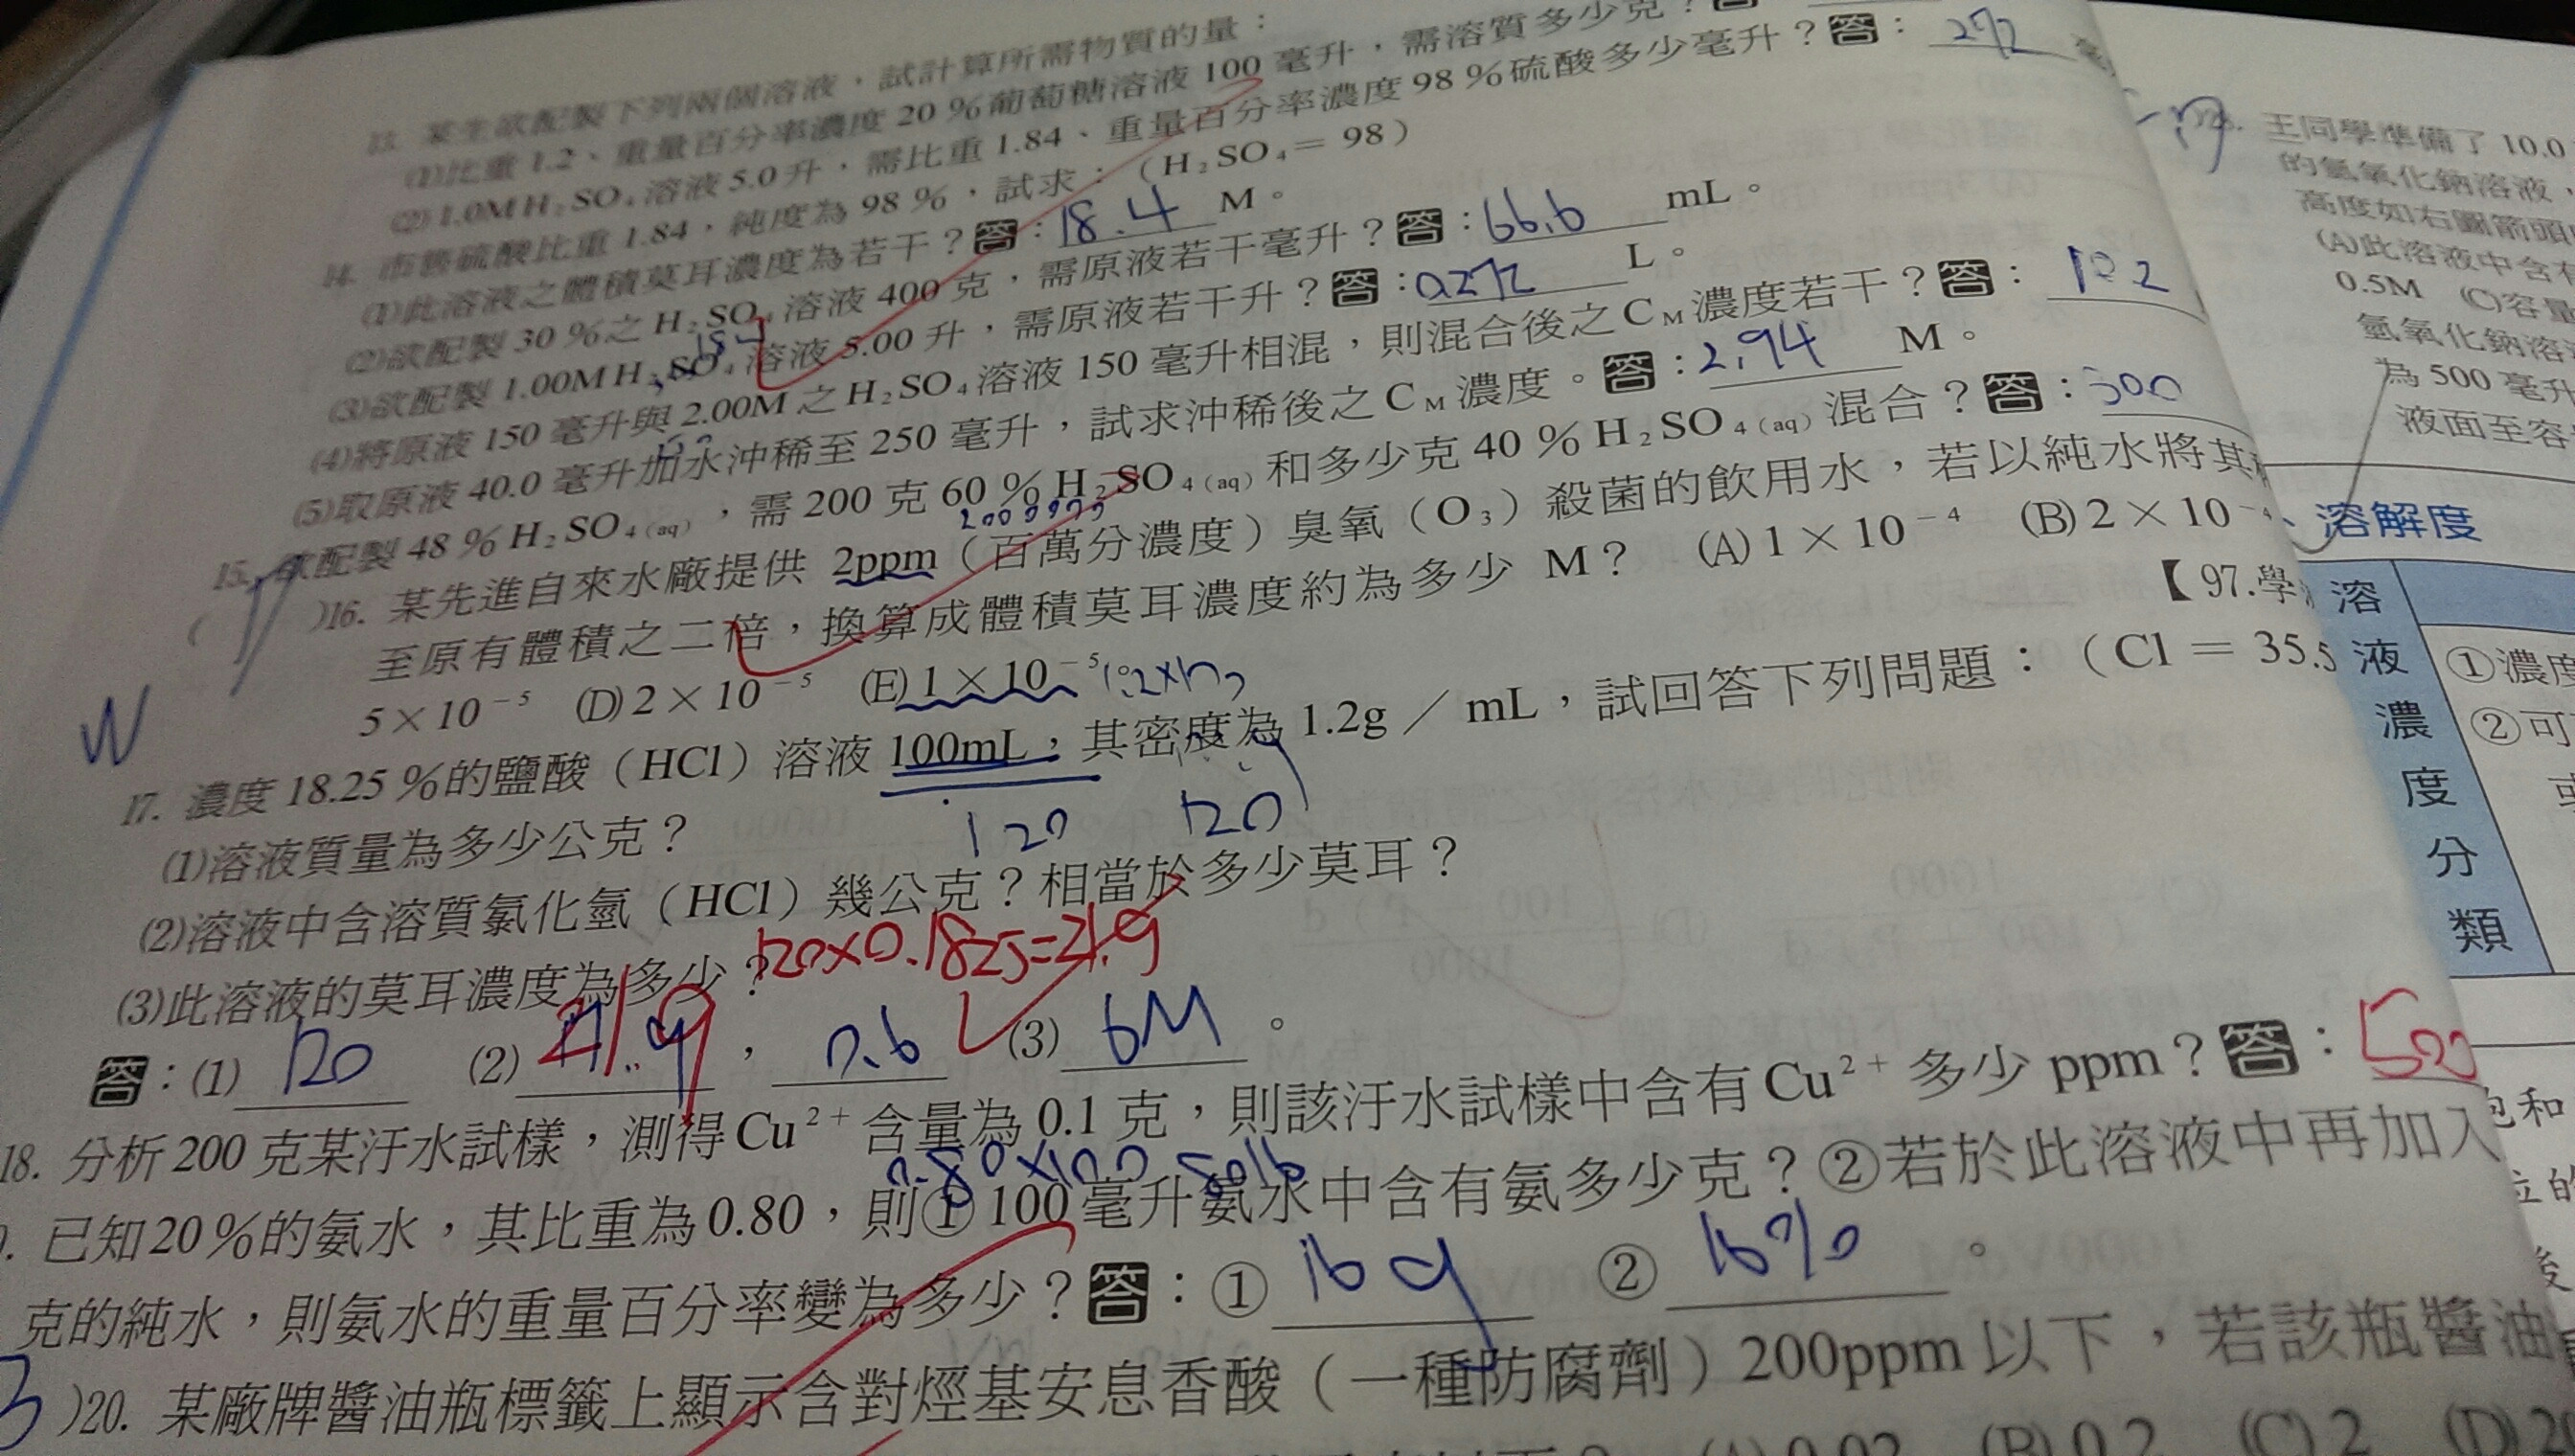 13. 某生欲配製下列兩個溶液,試計算所需物質的量:
(1)比重1.2、重量百分率濃度20%葡萄糖溶液100毫升,需溶質多少克?答:
(2)1.0M H₂SO₄溶液5.0升,需比重1.84、重量百分率濃度98%硫酸多少毫升?答: 272 毫
14. 市售硫酸比重1.84,純度為98%,試求:(H₂SO₄=98)
(1)此溶液之體積莫耳濃度為若干?答: 18.4 M。
(2)欲配製30%之H₂SO₄溶液400克,需原液若干毫升?答: 66.6 mL。
(3)欲配製1.00M H₂SO₄溶液5.00升,需原液若干升?答: 0.272 L。
(4)將原液150毫升與2.00M之H₂SO₄溶液150毫升相混,則混合後之C_M濃度若干?答: 10.2
(5)取原液40.0毫升加水沖稀至250毫升,試求沖稀後之C_M濃度。答: 2.94 M。
15. 欲配製48%H₂SO₄(aq),需200克60%H₂SO₄(aq)和多少克40%H₂SO₄(aq)混合?答: 300
( )16. 某先進自來水廠提供2ppm(百萬分濃度)臭氧(O₃)殺菌的飲用水,若以純水將其
至原有體積之二倍,換算成體積莫耳濃度約為多少M? (A)1×10⁻⁴ (B)2×10⁻⁴
5×10⁻⁵ (D)2×10⁻⁵ (E)1×10⁻⁵
【97.學
17. 濃度18.25%的鹽酸(HCl)溶液100mL,其密度為1.2g/mL,試回答下列問題:(Cl=35.5
120 120
(1)溶液質量為多少公克?
(2)溶液中含溶質氯化氫(HCl)幾公克?相當於多少莫耳?
120×0.1825=21.9
(3)此溶液的莫耳濃度為多少?
答:(1) 120 (2) 21.9 , 0.6 (3) 6M 。
18. 分析200克某汙水試樣,測得Cu²⁺含量為0.1克,則該汙水試樣中含有Cu²⁺多少ppm?答: 500
. 已知20%的氨水,其比重為0.80,則①100毫升氨水中含有氨多少克?②若於此溶液中再加入
克的純水,則氨水的重量百分率變為多少?答:① 16g ② 16% 。
)20. 某廠牌醬油瓶標籤上顯示含對烴基安息香酸(一種防腐劑)200ppm以下,若該瓶醬油
(A)0.02 (B)0.2 (C)2 (D)2
王同學準備了10.0
的氫氧化鈉溶液,
高度如右圖箭頭
(A)此溶液中含有
0.5M (C)容量
氫氧化鈉溶
為500毫升
液面至容
、溶解度
溶液濃度分類
①濃度
②可